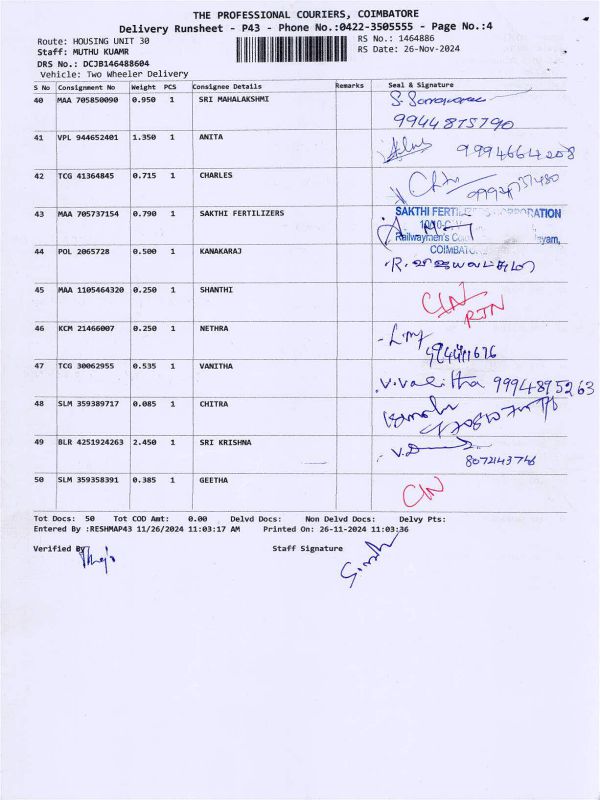 THE PROFESSIONAL COURIERS, COIMBATORE
Delivery Runsheet - P43 - Phone No.:0422-3505555 - Page No.:4
Route: HOUSING UNIT 30 RS No.: 1464886
Staff: MUTHU KUAMR RS Date: 26-Nov-2024
DRS No.: DCJB146488604
Vehicle: Two Wheeler Delivery
S No Consignment No Weight PCS Consignee Details Remarks Seal & Signature
40 MAA 705850090 0.950 1 SRI MAHALAKSHMI
9944875790
41 VPL 944652401 1.350 1 ANITA
9994664208
42 TCG 41364845 0.715 1 CHARLES
43 MAA 705737154 0.790 1 SAKTHI FERTILIZERS SAKTHI CORPORATION
Railwaymen's
44 POL 2065728 0.500 1 KANAKARAJ
45 MAA 1105464320 0.250 1 SHANTHI
RTN
46 KCM 21466007 0.250 1 NETHRA
47 TCG 30062955 0.535 1 VANITHA V.Vanitha 9994895263
48 SLM 359389717 0.085 1 CHITRA
49 BLR 4251924263 2.450 1 SRI KRISHNA
8072143746
50 SLM 359358391 0.385 1 GEETHA
Tot Docs: 50 Tot COD Amt: 0.00 Delvd Docs: Non Delvd Docs: Delvy Pts:
Entered By :RESHMAP43 11/26/2024 11:03:17 AM Printed On: 26-11-2024 11:03:36
Verified By Staff Signature